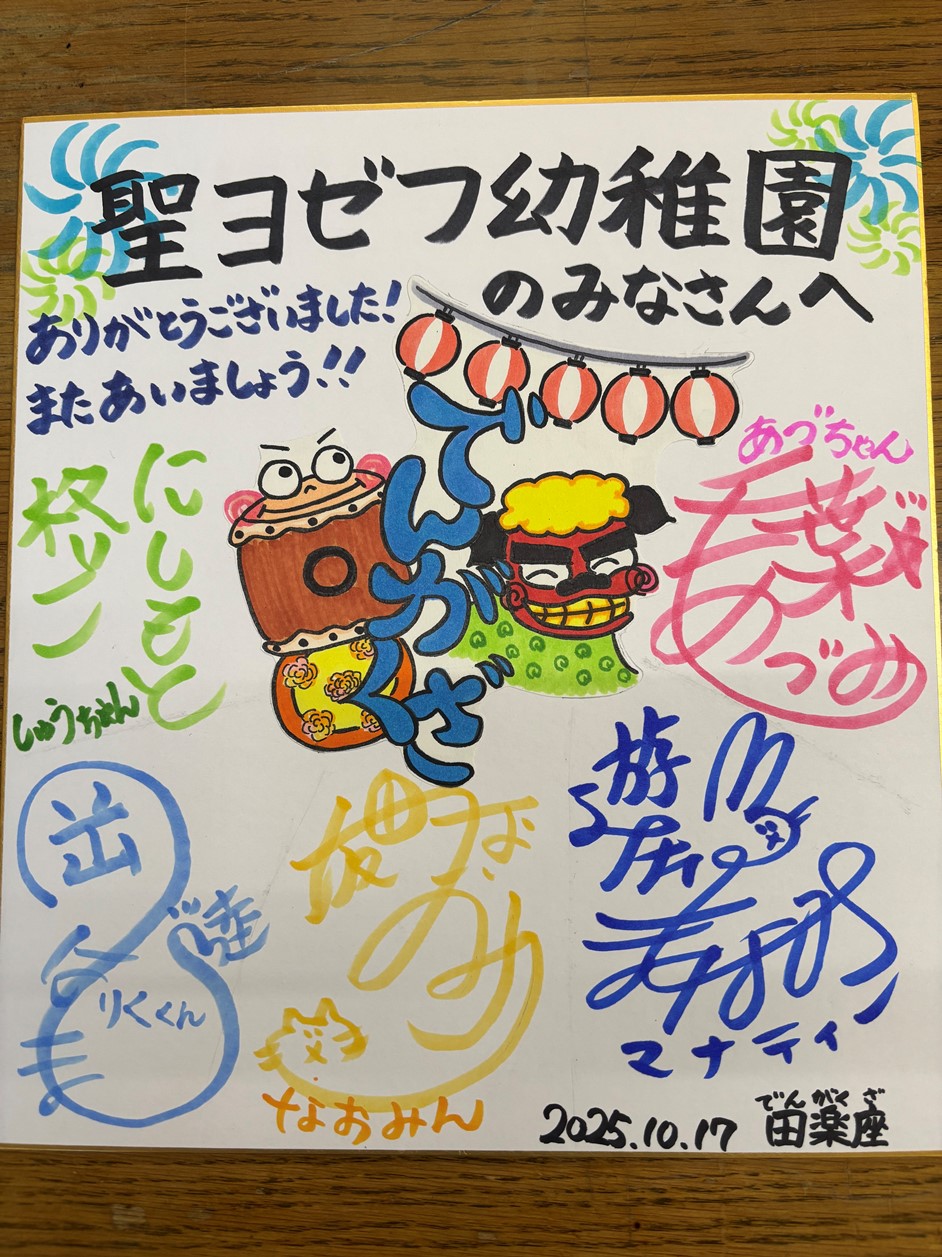 聖ヨゼフ幼稚園
のみなさんへ
ありがとうございました!
またあいましょう!!
でんがくざ
あづちゃん
あづみ
にしもと
柊リン
しゅうちゃん
出
陸
りくくん
なおみ
なおみん
マナティ
2025.10.17
でんがくざ
田楽座